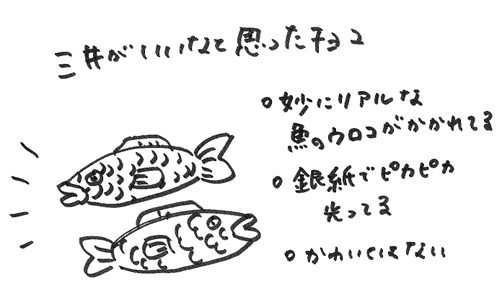 三井がいいなと思ったチョコ
○妙にリアルな
魚のウロコがかかれてる
○銀紙でピカピカ
光ってる
○かわいくはない